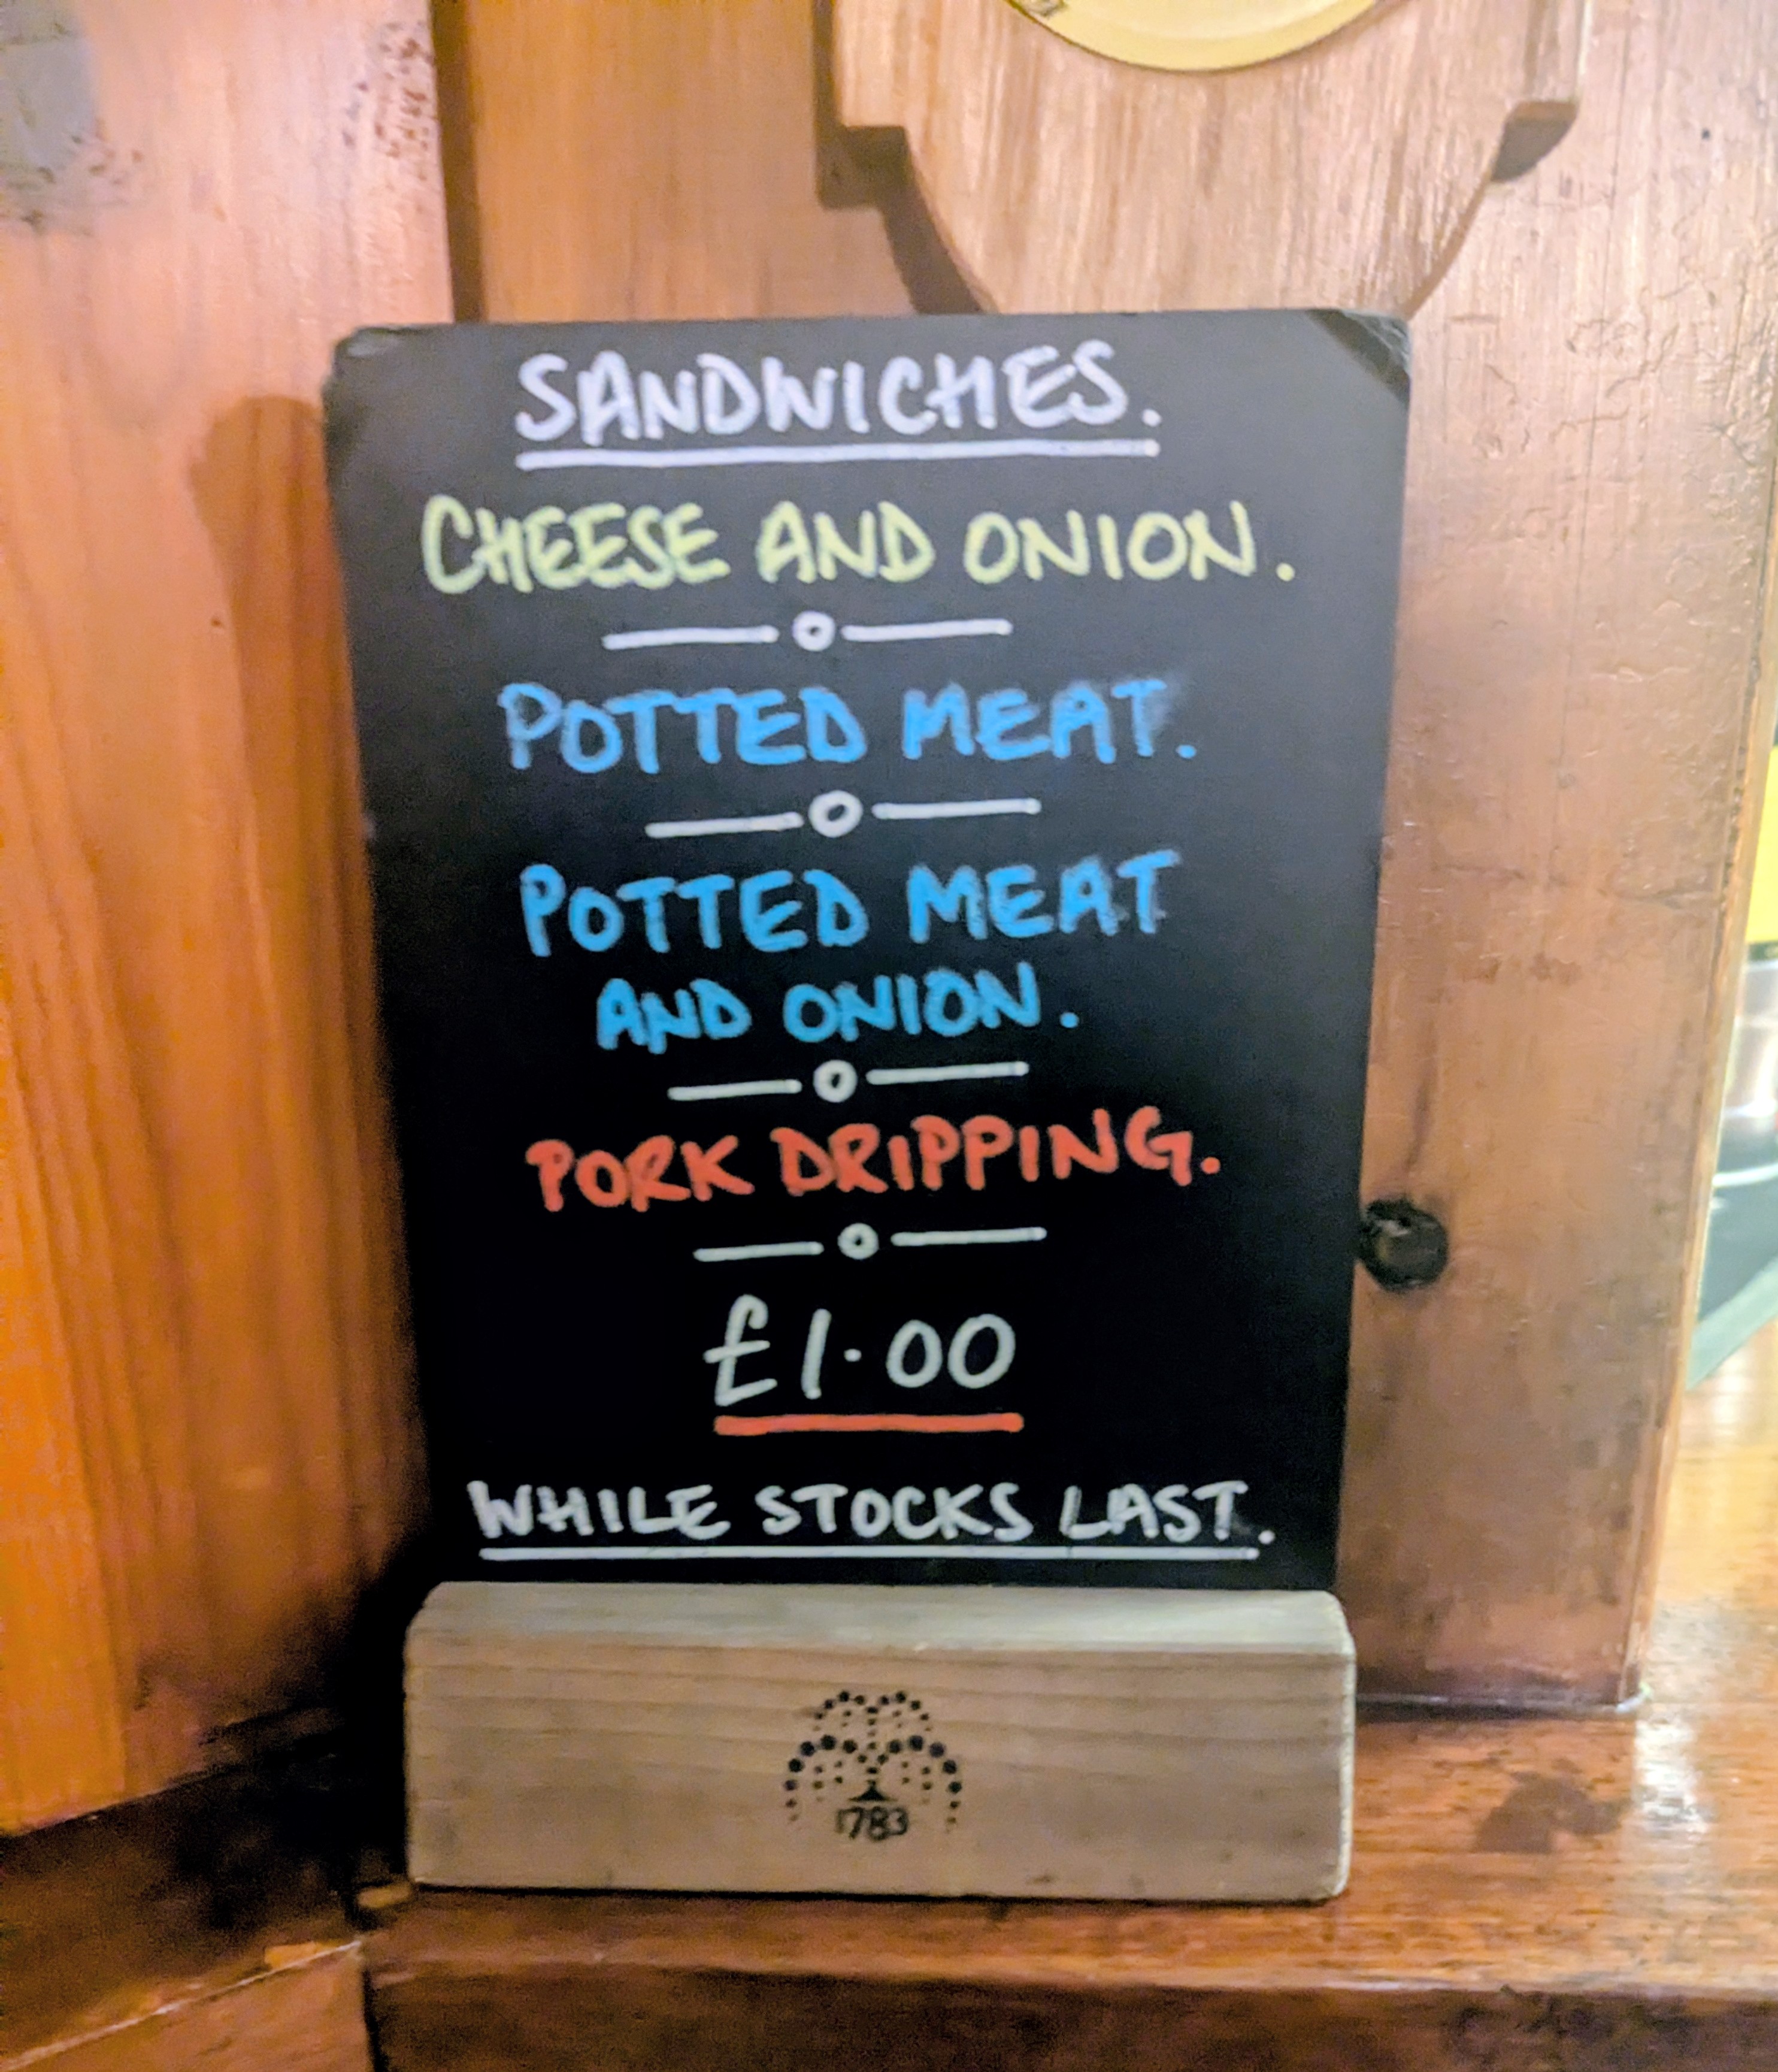 SANDWICHES.
CHEESE AND ONION.
POTTED MEAT.
POTTED MEAT
AND ONION.
PORK DRIPPING.
£1.00
WHILE STOCKS LAST.
1783